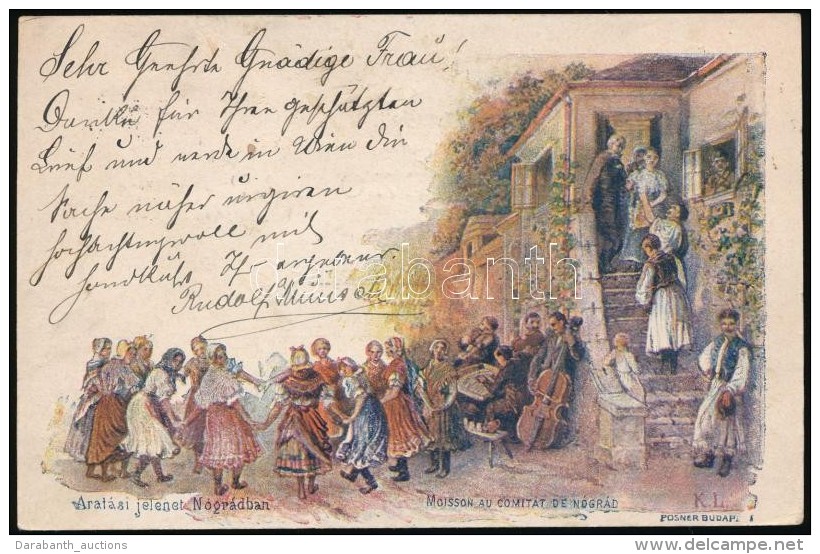 Sehr Geehrte Gnädige Frau!
Danke für Ihren geschätzten
Brief und werde in Wien die
Sache näher urgiren
hochachtungsvoll mit
Handkuß Ihr ergebener
Rudolf
darabanth
Aratási jelenet Nógrádban
MOISSON AU COMITAT DE NÓGRÁD
K.L.
POSNER BUDAP.
Darabanth_auctions
delcampe.net